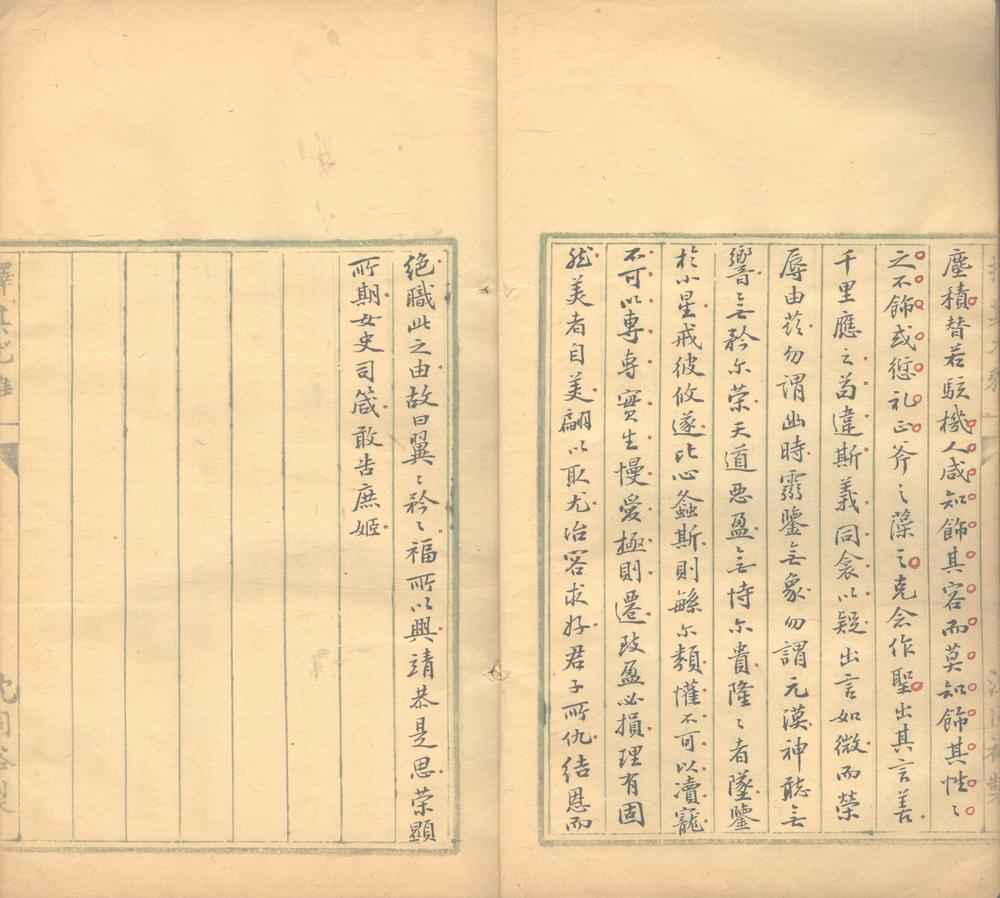 塵積替若駭機人咸知飾其容而莫知飾其性〻
之不飾或愆礼正斧之藻之克念作聖出其言善
千里應之苟違斯義同衾以疑出言如微而榮
辱由茲勿謂幽時靈鑒无象勿謂元漠神聽无
響无矜尔荣天道惡盈无恃尔貴隆〻者墜鑒
於小星戒彼攸遂比心螽斯則緐尔類懽不可以瀆寵
不可以專專實生慢愛極則遷致盈必損理有固
然美者自美翩以取尤冶容求好君子所仇結恩而
絶職此之由故曰翼〻矜〻福所以興靖恭是思荣顯
所期女史司箴敢告庶姬